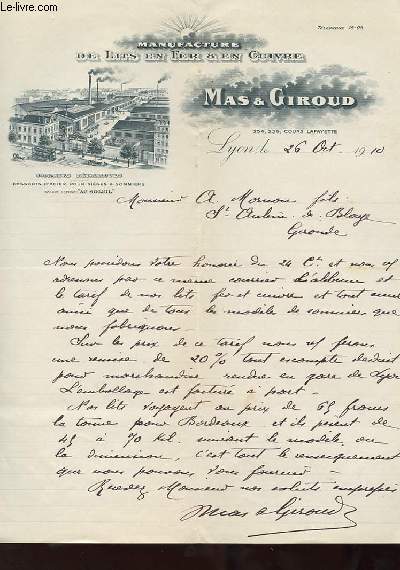 www.le-livre.com
TÉLÉPHONE 14-09
MANUFACTURE
DE LITS EN FER & EN CUIVRE
MAS & GIROUD
COURS LAFAYETTE
Lyon, le 26 Oct. 1910
RESSORTS D'ACIER POUR SIÈGES & SOMMIERS
Monsieur A fils
St Aubin de Blaye
Gironde
Nous possédons votre honorée du 24 Ct et nous vs
adressons par ce même courrier l'album et
le tarif de nos lits fer et cuivre et tout
ainsi que de tous les modèles de sommier que
nous fabriquons.
Sur les prix de ce tarif nous vs ferons
une remise de 20% tout escompte déduit
pour marchandise rendue en gare de Lyon
L'emballage est facturé à part.
Nos lits voyagent au prix de 65 francs
la tonne pour Bordeaux et ils pèsent de
45 à 70 Kil. suivant le modèle ou
la dimension, c'est tout le renseignement
que nous pouvons vous fournir.
Recevez Monsieur nos saluts empressés
Mas & Giroud